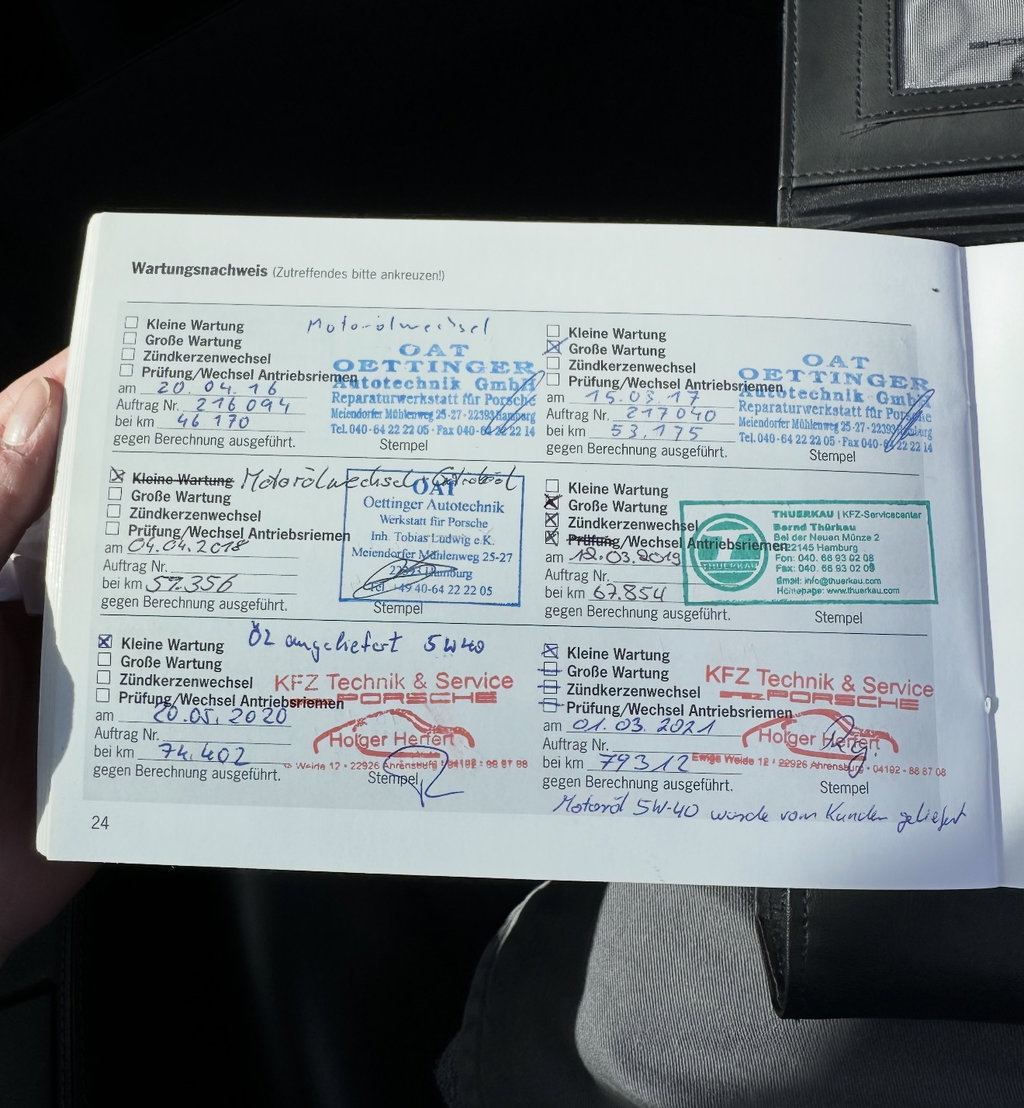 Wartungsnachweis (Zutreffendes bitte ankreuzen!)
Kleine Wartung
Motorölwechsel
Große Wartung
Zündkerzenwechsel
Prüfung/Wechsel Antriebsriemen
am 20.04.16
Auftrag Nr. 216094
bei km 46 170
gegen Berechnung ausgeführt.
OAT
OETTINGER
Autotechnik GmbH
Reparaturwerkstatt für Porsche
Meiendorfer Mühlenweg 25-27 - 22393 Hamburg
Tel. 040-64 22 22 05 · Fax 040-64 22 22 14
Stempel
Kleine Wartung
Große Wartung
Zündkerzenwechsel
Prüfung/Wechsel Antriebsriemen
am 15.03.17
Auftrag Nr. 217040
bei km 53.175
gegen Berechnung ausgeführt.
OAT
OETTINGER
Autotechnik GmbH
Reparaturwerkstatt für Porsche
Meiendorfer Mühlenweg 25-27 - 22393 Hamburg
Tel. 040-64 22 22 05 · Fax 040-64 22 22 14
Stempel
Kleine Wartung Motorölwechsel
Große Wartung
Zündkerzenwechsel
Prüfung/Wechsel Antriebsriemen
am 04.04.2018
Auftrag Nr.
bei km 57.356
gegen Berechnung ausgeführt.
OAT
Oettinger Autotechnik
Werkstatt für Porsche
Inh. Tobias Ludwig e.K.
Meiendorfer Mühlenweg 25-27
22393 Hamburg
Tel +49 40-64 22 22 05
Stempel
Kleine Wartung
Große Wartung
Zündkerzenwechsel
Prüfung/Wechsel Antriebsriemen
am 12.03.2019
Auftrag Nr.
bei km 67.854
gegen Berechnung ausgeführt.
THUERKAU | KFZ-Servicecenter
Bernd Thürkau
Bei der Neuen Münze 2
22145 Hamburg
Fon: 040. 66 93 02 08
Fax: 040. 66 93 02 09
Email: info@thuerkau.com
Homepage: www.thuerkau.com
THUERKAU
Stempel
Kleine Wartung
Öl angeliefert 5W40
Große Wartung
Zündkerzenwechsel
Prüfung/Wechsel Antriebsriemen
am 20.05.2020
Auftrag Nr.
bei km 74.402
gegen Berechnung ausgeführt.
KFZ Technik & Service
PORSCHE
Holger Herfert
Weide 12 - 22926 Ahrensburg - 04192 - 88 87 08
Stempel
Kleine Wartung
Große Wartung
Zündkerzenwechsel
Prüfung/Wechsel Antriebsriemen
am 01.03.2021
Auftrag Nr.
bei km 79312
gegen Berechnung ausgeführt.
KFZ Technik & Service
PORSCHE
Holger Herfert
Ewige Weide 12 - 22926 Ahrensburg - 04192 - 88 87 08
Stempel
Motoröl 5W-40 wurde vom Kunden geliefert
24